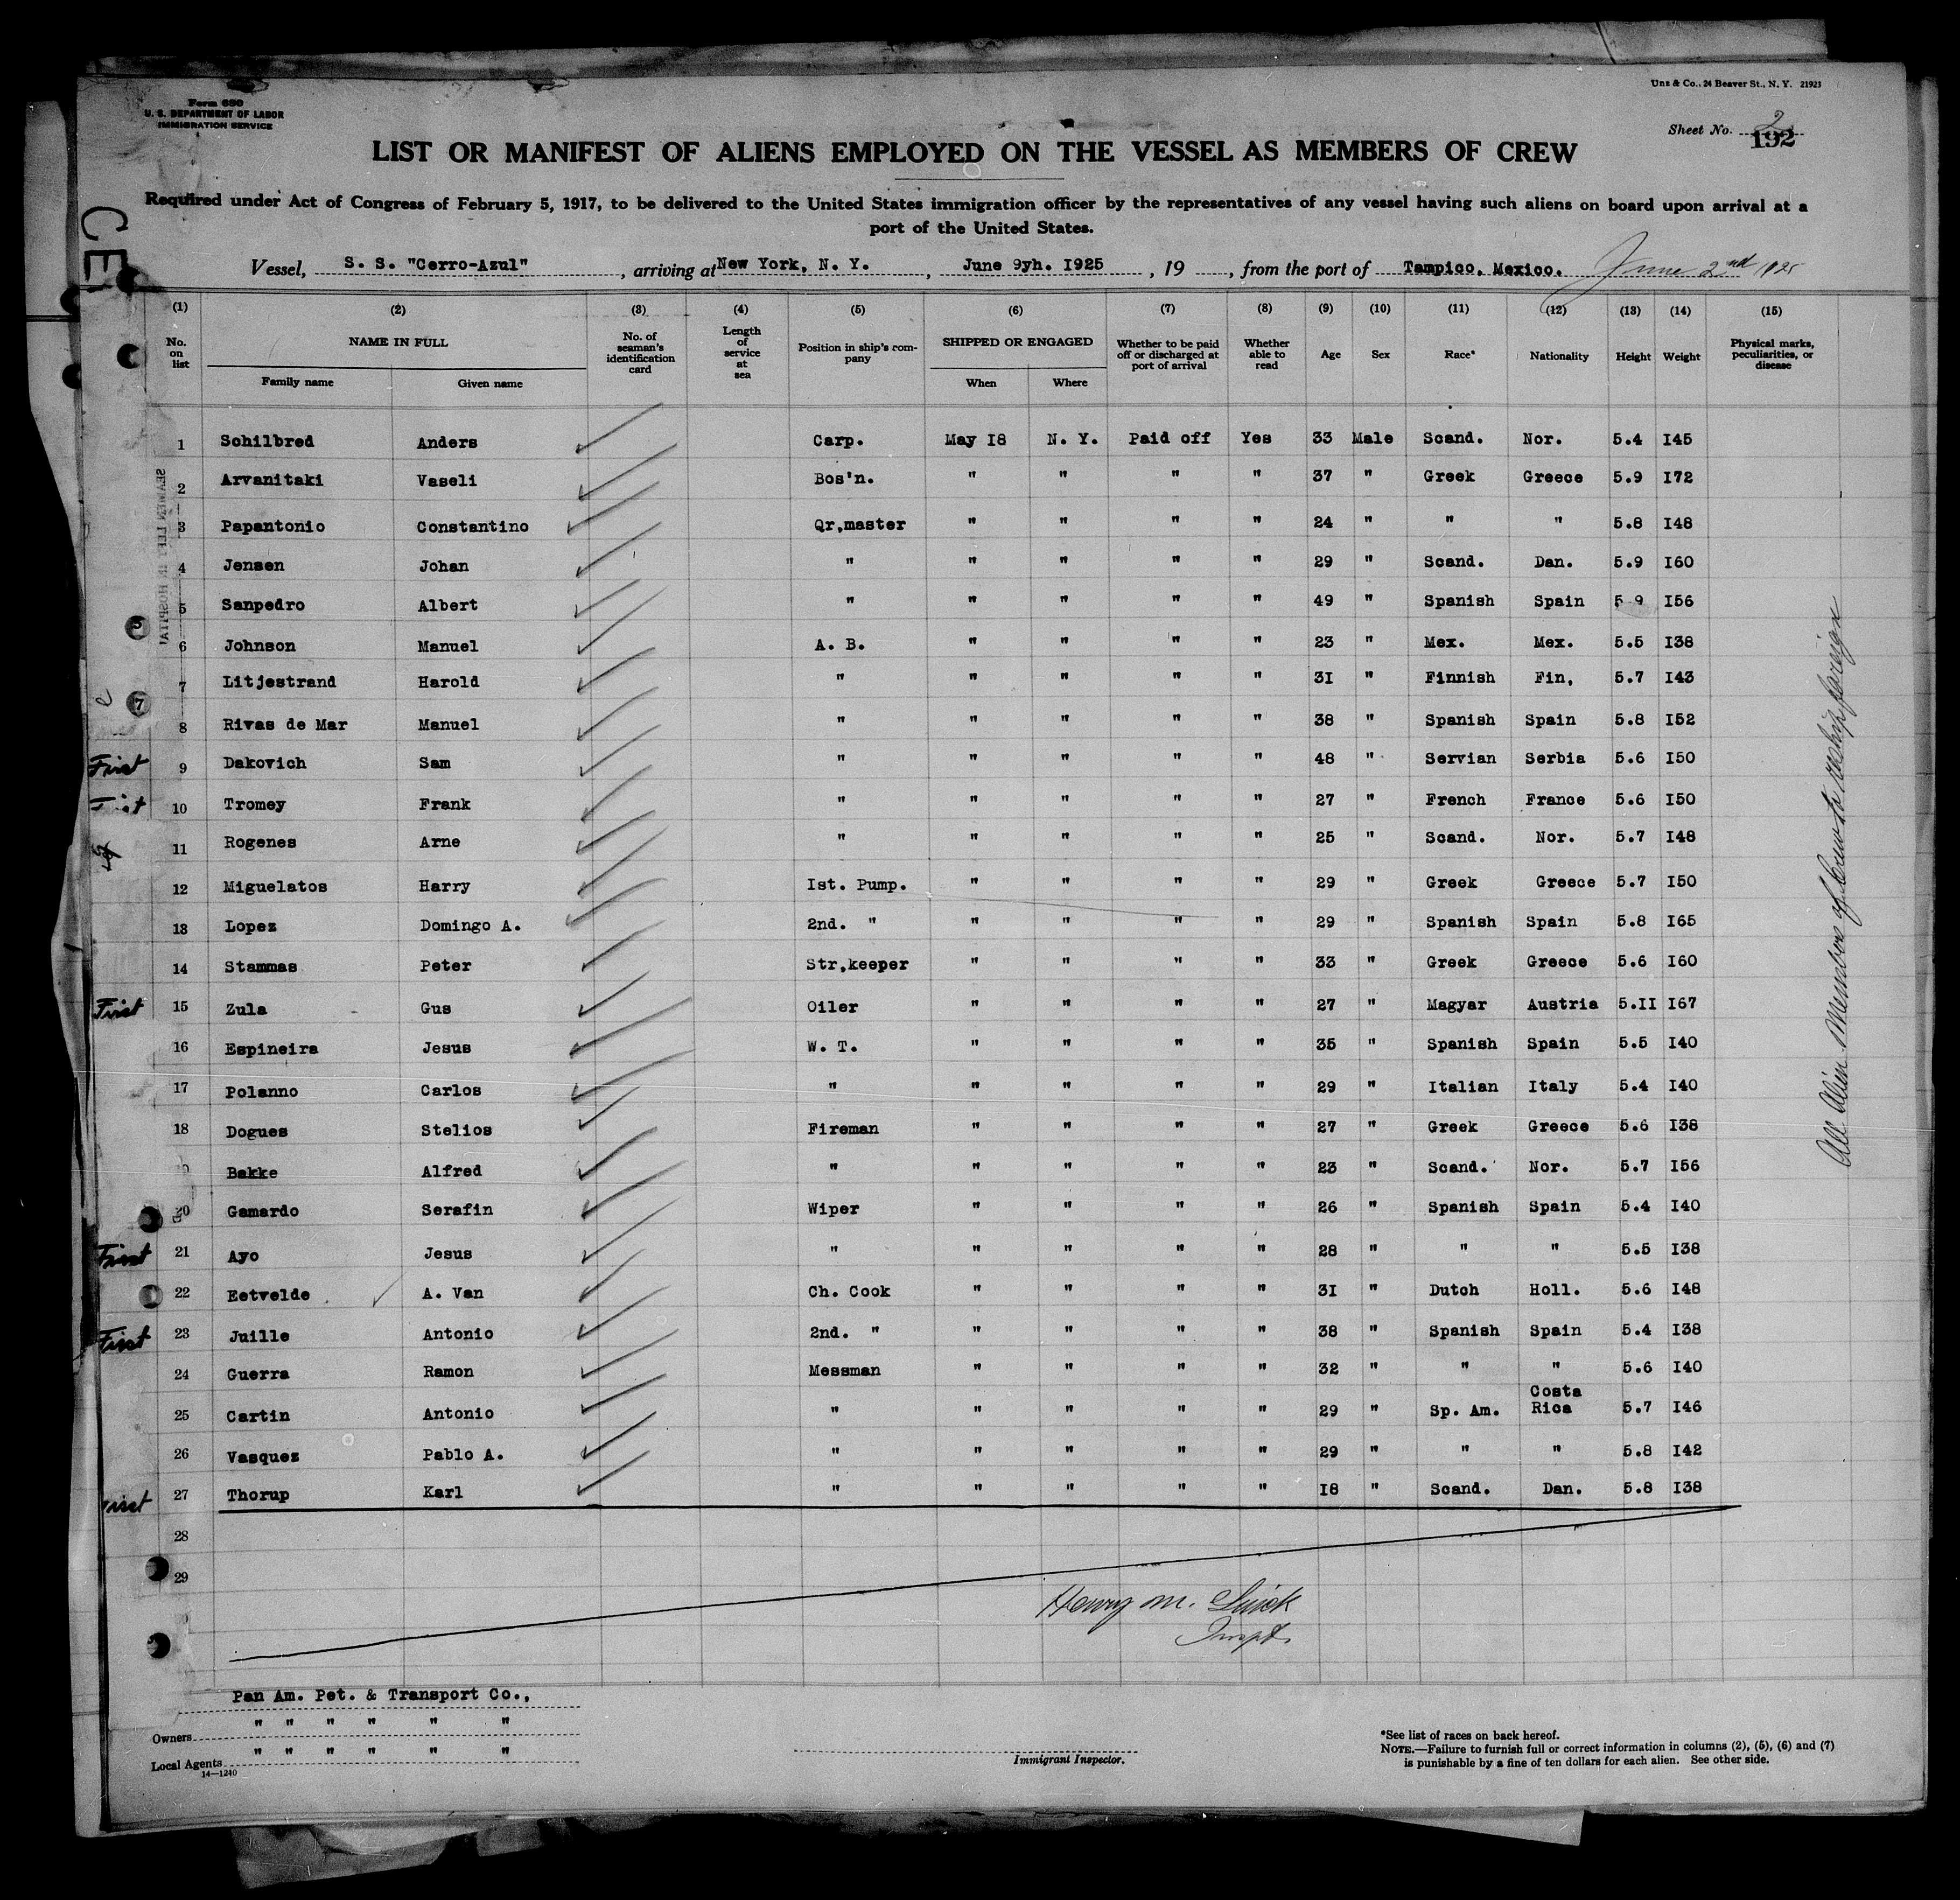 Uns & Co., 24 Beaver St., N. Y. 21923
Form 680
U. S. DEPARTMENT OF LABOR
IMMIGRATION SERVICE
Sheet No. 2
192
LIST OR MANIFEST OF ALIENS EMPLOYED ON THE VESSEL AS MEMBERS OF CREW
Required under Act of Congress of February 5, 1917, to be delivered to the United States immigration officer by the representatives of any vessel having such aliens on board upon arrival at a
port of the United States.
Vessel, S. S. "Cerro-Azul", arriving at New York, N. Y., June 9yh. I925, 19, from the port of Tampico, Mexico. June 2nd 1925
(1) (2) (3) (4) (5) (6) (7) (8) (9) (10) (11) (12) (13) (14) (15)
No. on list NAME IN FULL Family name Given name No. of seaman's identification card Length of service at sea Position in ship's company SHIPPED OR ENGAGED When Where Whether to be paid off or discharged at port of arrival Whether able to read Age Sex Race* Nationality Height Weight Physical marks, peculiarities, or disease
1 Schilbred Anders Carp. May I8 N. Y. Paid off Yes 33 Male Scand. Nor. 5.4 I45
2 Arvanitaki Vaseli Bos'n. " " " " 37 " Greek Greece 5.9 I72
3 Papantonio Constantino Qr,master " " " " 24 " " " 5.8 I48
4 Jensen Johan " " " " " 29 " Scand. Dan. 5.9 I60
5 Sanpedro Albert " " " " " 49 " Spanish Spain 5.9 I56
6 Johnson Manuel A. B. " " " " 23 " Mex. Mex. 5.5 I38
7 Litjestrand Harold " " " " " 3I " Finnish Fin, 5.7 I43
8 Rivas de Mar Manuel " " " " " 38 " Spanish Spain 5.8 I52
First 9 Dakovich Sam " " " " " 48 " Servian Serbia 5.6 I50
10 Tromey Frank " " " " " 27 " French France 5.6 I50
11 Rogenes Arne " " " " " 25 " Scand. Nor. 5.7 I48
12 Miguelatos Harry Ist. Pump. " " " " 29 " Greek Greece 5.7 I50
13 Lopez Domingo A. 2nd. " " " " " 29 " Spanish Spain 5.8 I65
14 Stammas Peter Str,keeper " " " " 33 " Greek Greece 5.6 I60
First 15 Zula Gus Oiler " " " " 27 " Magyar Austria 5.II I67
16 Espineira Jesus W. T. " " " " 35 " Spanish Spain 5.5 I40
17 Polanno Carlos " " " " " 29 " Italian Italy 5.4 I40
18 Dogues Stelios Fireman " " " " 27 " Greek Greece 5.6 I38
Bakke Alfred " " " " " 23 " Scand. Nor. 5.7 I56
20 Gamardo Serafin Wiper " " " " 26 " Spanish Spain 5.4 I40
First 21 Ayo Jesus " " " " " 28 " " " 5.5 I38
22 Eetvelde A. Van Ch. Cook " " " " 3I " Dutch Holl. 5.6 I48
First 23 Juille Antonio 2nd. " " " " " 38 " Spanish Spain 5.4 I38
24 Guerra Ramon Messman " " " " 32 " " " 5.6 I40
25 Cartin Antonio " " " " " 29 " Sp. Am. Costa Rica 5.7 I46
26 Vasquez Pablo A. " " " " " 29 " " " 5.8 I42
First 27 Thorup Karl " " " " " I8 " Scand. Dan. 5.8 I38
28
29
All Alien Members of Crew to reship foreign
Henry M.
Inspt.
Pan Am. Pet. & Transport Co.,
Owners " " " " " "
Local Agents " " " " " "
14—1240
Immigrant Inspector.
*See list of races on back hereof.
NOTE.—Failure to furnish full or correct information in columns (2), (5), (6) and (7)
is punishable by a fine of ten dollars for each alien. See other side.